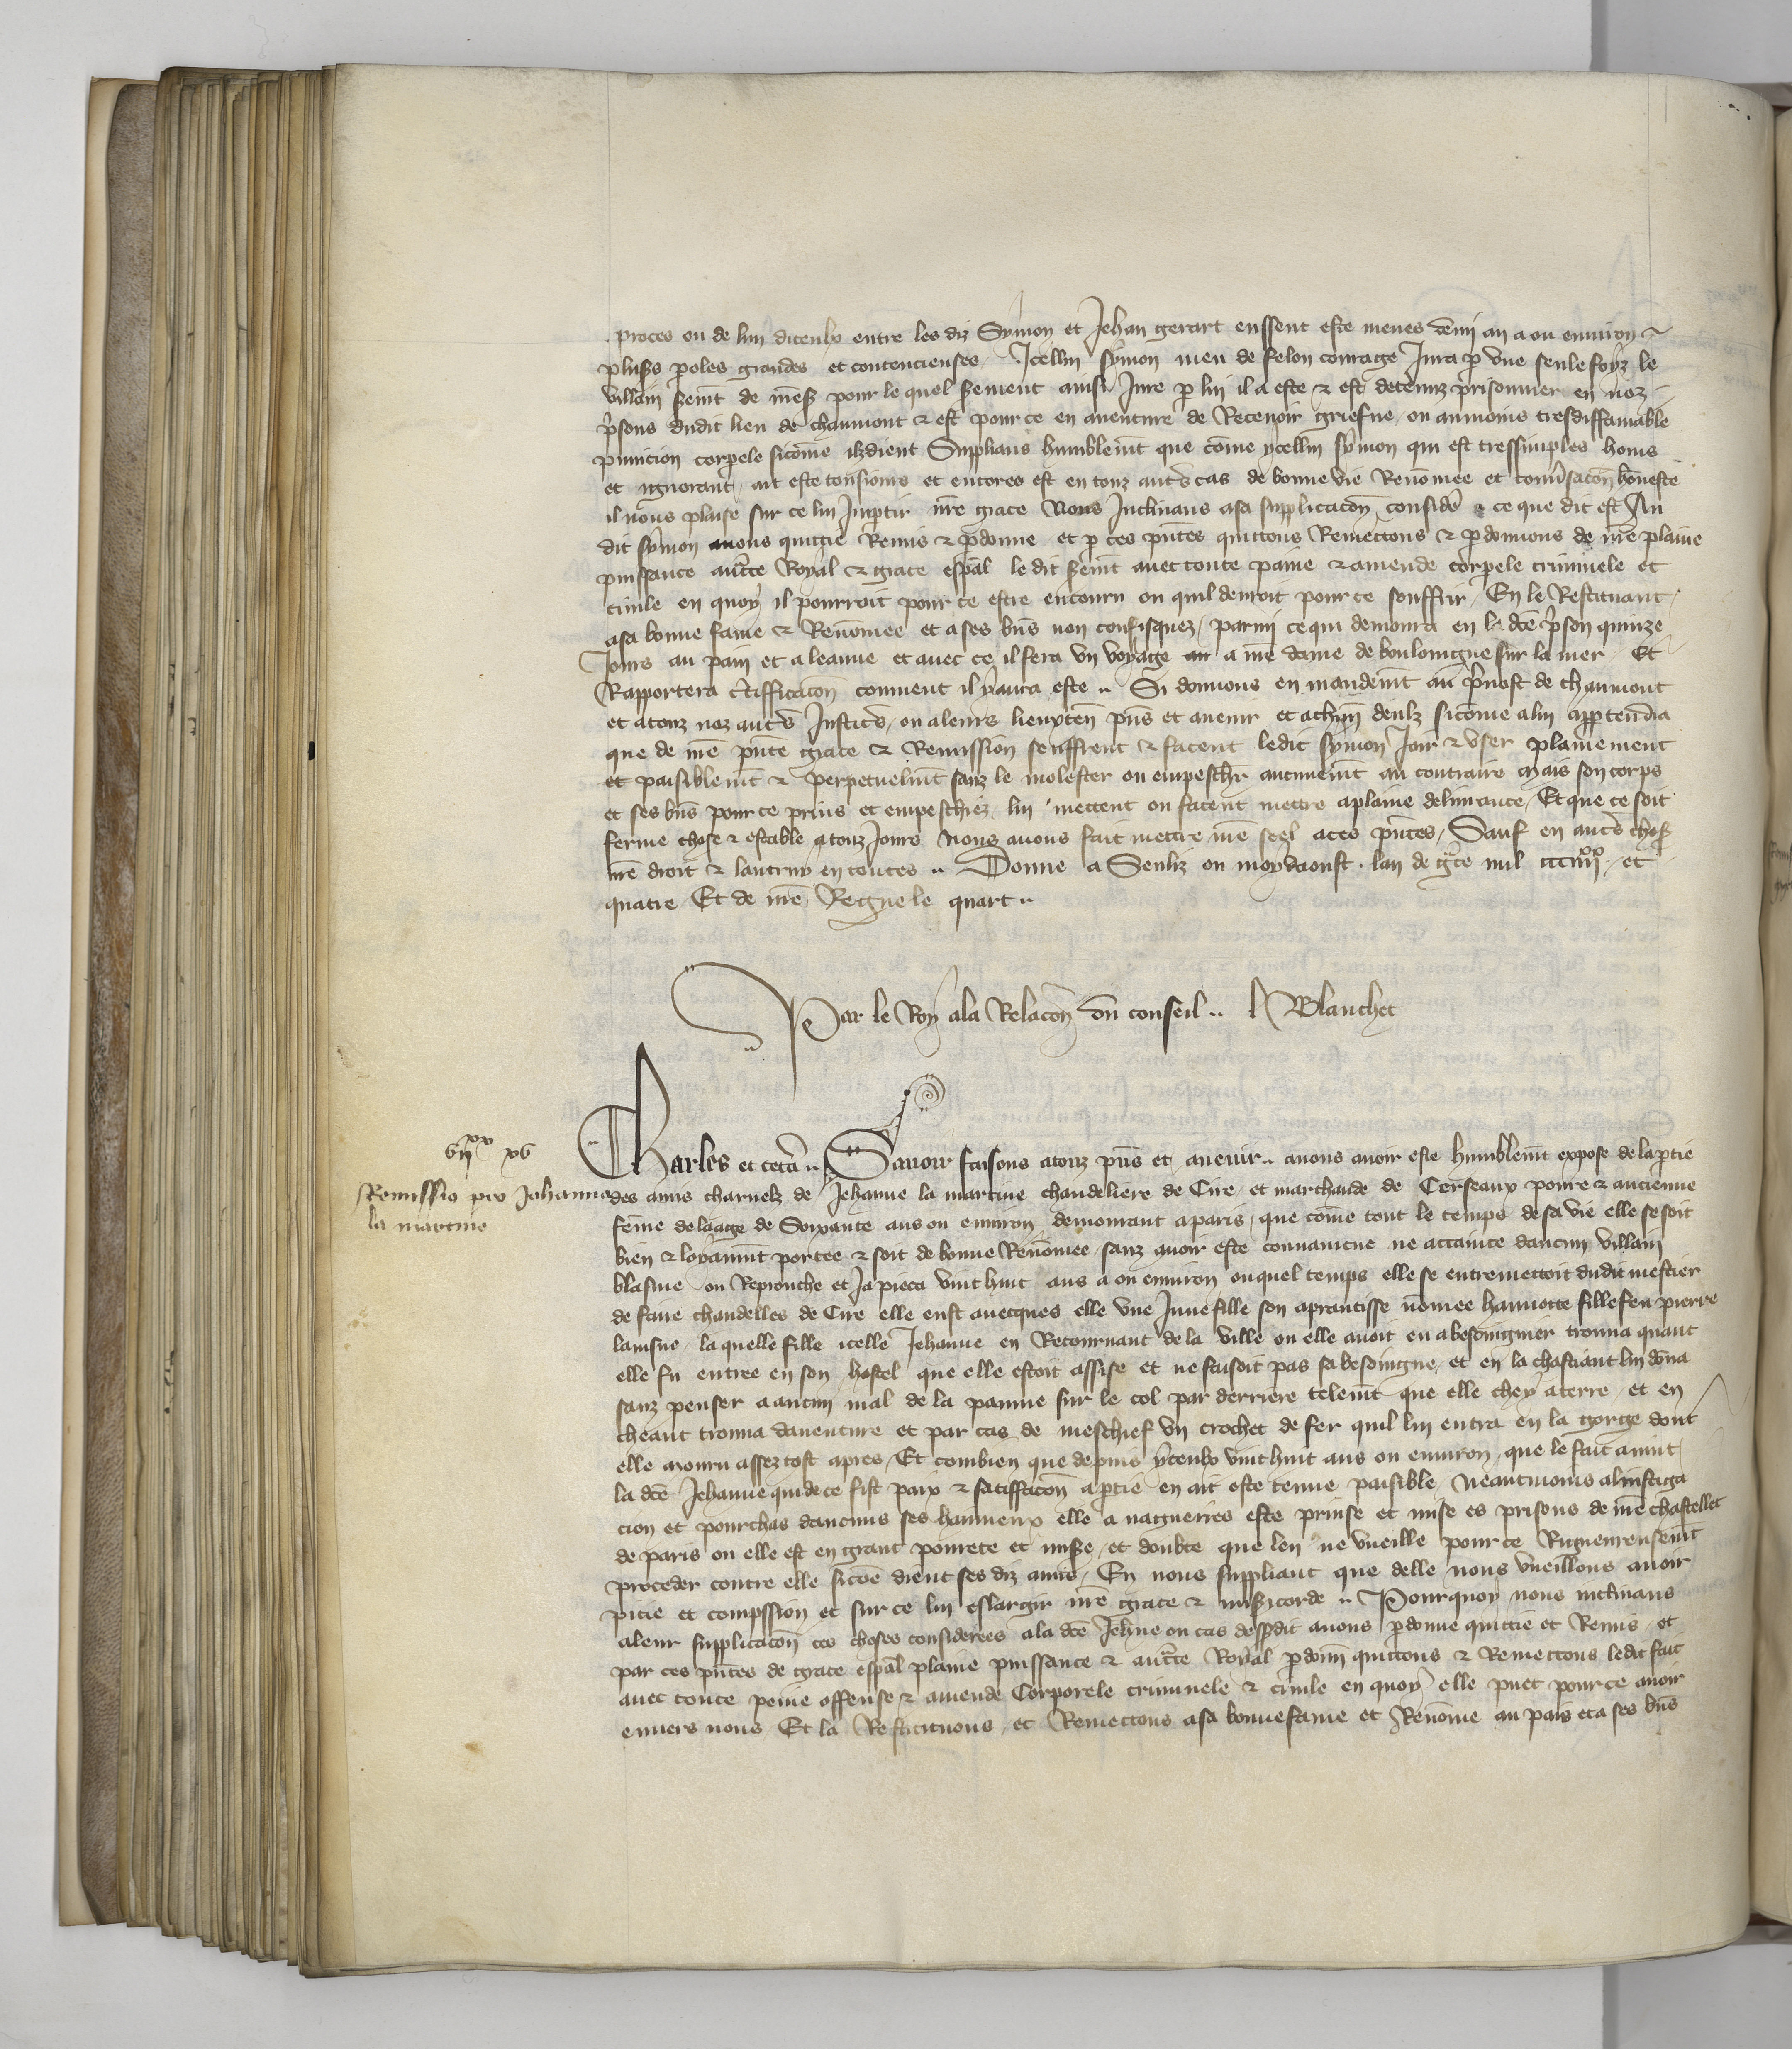 proces ou de lun diceulx entre les diz Symon et Jehan gerart eussent este meues demi an a ou environ &
plus's p'oles grandes et contencieuses. Icellui symon meu de felon courage Jura p' vne seule foyz le
villain serm't de me's pour le quel serment ainsi Jure p' lui il a este & est detenuz prisonnier en noz
p'sons dudit lieu de chaumont & est pour ce en auenture de Receuoir griefue ou aumoins tresdiffamable
punicion corp'ele sicom'e ilz dient Supplians humblem't que com'e ycellui symon qui est tressimples homs
et ignorant ait este tousiours et encores est en touz aut's cas de bonne vie Renom'ee et conu'sacon honeste
il nous plaise sur ce lui Imp'tir n're grace Nous Inclinans asa supplicacon consider' ce que dit est Au
dit symon auons quittie Remis & p'donne et p' ces p'ntes quittons Remettons & p'donnons de n're plaine
puissance auct'te Royal & grace esp'al le dit serm't auec toute paine & amende corp'ele criminele et
ciuile en quoy il pourroit pour ce estre encouru ou quil deuroit pour ce souffrir. En le Restituant
asa bonne fame & Renom'ee et a ses b'ns non confisquez / parmi ce qui demoura en la d'te p'son quinze
Jours au pain et a leaue et auec ce il fera vn voyage a n're dame de bouloingne sur la mer Et
Rapportera c'tifficacon comment il y aura este .. Si donnons en mandem't au p'uost de chaumont
et atouz noz aut's Justic's ou aleurs lieuxten' p'ns et auenir et achun' deulz sicom'e alui app'tendra
que de n're p'nte grace & Remission seuffrent & facent ledit symon Joir & vser plainement
et paisiblem't & perpetuelm't sanz le molester ou empesch'r aucunem't au contraire mais son corps
et ses b'ns pour ce prins et empeschiez lui mettent ou facent mettre aplaine deliurance. Et que ce soit
ferme chose & estable atouz Jours Nous auons fait mettre n're seel aces p'ntes / Sauf en aut's chos's
n're droit & lautruy en toutes .. Donne a Senliz ou moys daoust. lan de g'ce mil ccciiii xx et
quatre Et de n're Regne le quart ..
Par le Roy ala Relacon du conseil .. Blanchet
vii xx xv
Remissio pro Johanna
la martine
Charles et cet'a .. Sauoir faisons atouz p'ns et auenir .. a nous auoir este humblem't expose de la p'tie
des amis charnelz de Jehanne la martine chandeliere de Cire et marchande de Cerseaux poure & ancienne
fem'e de laage de Soixante ans ou enuiron demourant aparis / que com'e tout le temps de sa vie elle se soit
bien & loyaum't portee & soit de bonne Renom'ee sanz auoir este conuaincue ne attainte daucun villain
blasme ou Reprouche et Ja pieca vint huit ans a ou enuiron ouquel temps elle se entremettoit dudit mestier
de faire chandelles de Cire elle eust auecques elle vne Jeune fille son aprantisse nom'ee hannotte fille feu pierre
laisne / laquelle fille icelle Jehanne en Retournant de la ville ou elle auoit eu abesoingnier trouua quant
elle fu entree en son hostel que elle estoit assise et ne faisoit pas sa besoingne / et en la chastiant lui don'a
sanz penser a aucun mal de la paume sur le col par derriere telem't que elle chey aterre et en
cheant trouua dauenture et par cas de meschief vn crochet de fer quil lui entra en la gorge dont
elle mouru assez tost apres / Et combien que depuis yceulx vint huit ans ou enuiron que le fait auint
la d'te Jehanne qui de ce fist paix & satiffacon a p'tie en ait este tenue paisible Neantmoins alinstiga
cion et pourchas daucuns ses hayneux elle a nagueires este prinse et mise es prisons de n're chastellet
de paris ou elle est en grant pourete et mis'e et doubte que len ne vueille pour ce Rigueureusem't
proceder contre elle sicom'e dient ses diz amis / En nous suppliant que delle nous vueillons auoir
pitie et comp'ssion et sur ce lui eslargir n're grace & mis'icorde .. Pourquoy nous inclinans
aleur supplicacon ces choses considerees ala d'te Jeh'ne ou cas dess'dit auons p'donne quittie et Remis et
par ces p'ntes de grace esp'al plaine puissance & auct'te Royal p'donn' quittons & Remettons ledit fait
auec toute peine offense & amende Corporele criminele & ciuile en quoy elle puet pour ce auoir
enuers nous Et la Restituons et Remettons asa bonne fame et Renom'e au pais et a ses b'ns